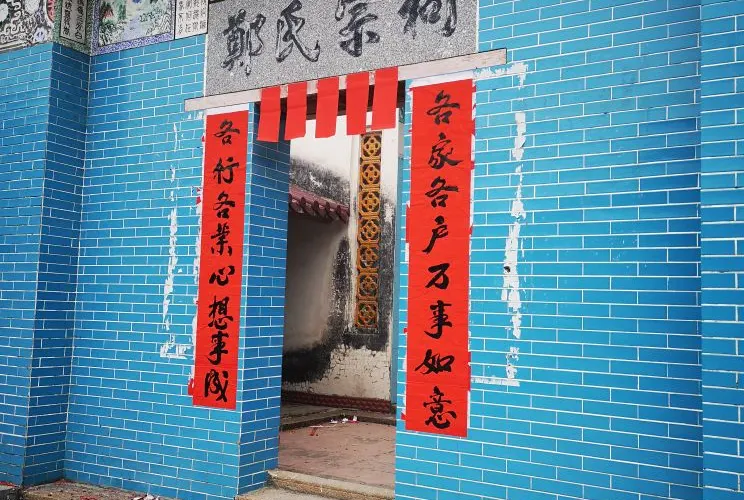 鄭氏宗祠
各家各户万事如意
各行各業心想事成